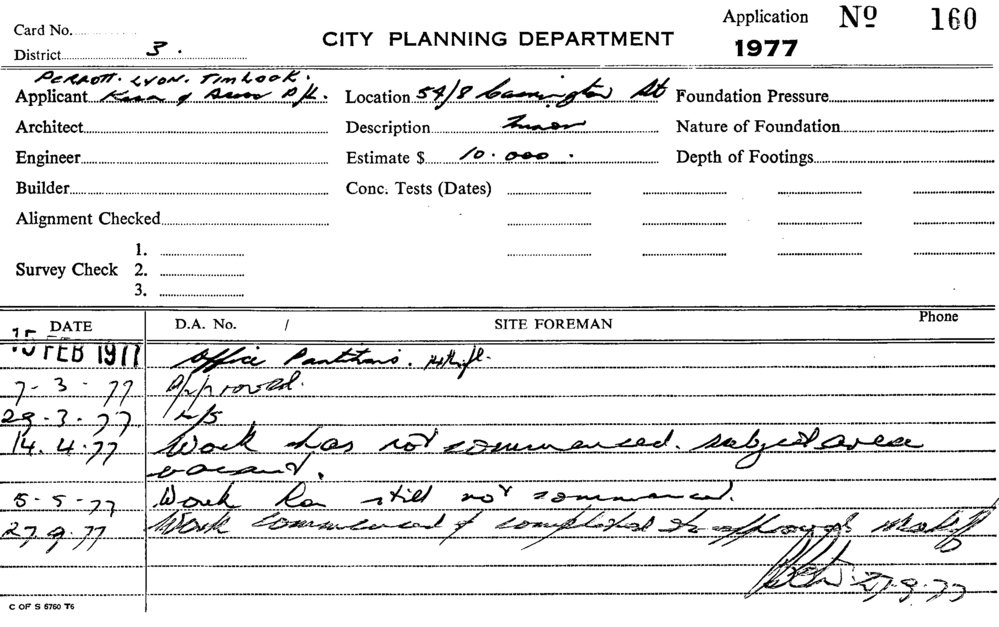 Card No.
Application No 160
District 3.
CITY PLANNING DEPARTMENT
1977
PERROTT. LYON. TIMLOCK.
Applicant P/L.
Location 54/8 St
Foundation Pressure
Architect
Description
Nature of Foundation
Engineer
Estimate $ 10.000.
Depth of Footings
Builder
Conc. Tests (Dates)
Alignment Checked
Survey Check
1.
2.
3.
DATE
D.A. No. /
SITE FOREMAN
Phone
15 FEB 1977 Office Partitions. 14th fl.
7-3-77 Approved.
29-3-77 N/S
14.4.77 Work has not commenced. subject area
vacant.
5-5-77 Work has still not commenced.
27.9.77 Work commenced & completed to approval
27-9-77
C OF S 5760 T6